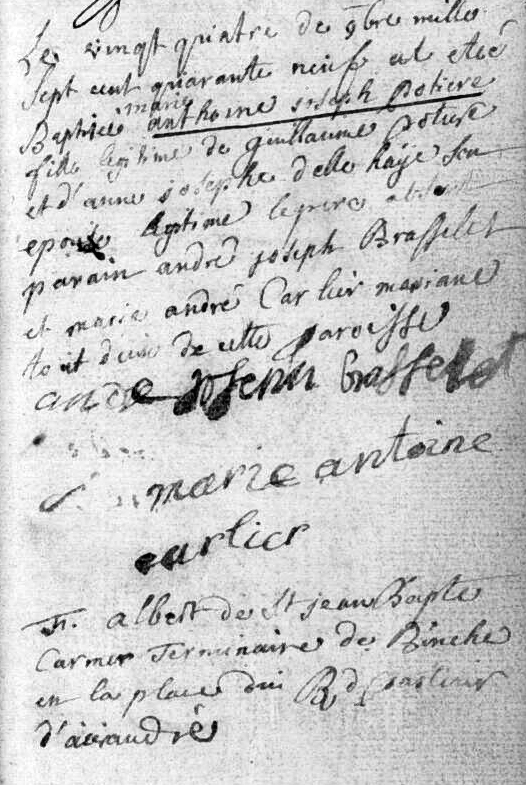 Le vingt quatre de 9bre mille
Sept cent quarante neuf at etté
Baptisée marie anthoine joseph Potiere
fille legitime de guillaume Potiere
et d'anne josephe delle haije son
epouse legitime le pere absent
parain andré joseph Brasselet
et marie andré Carlier maraine
tout deux de cette paroisse
andre joseph brasselet
marie antoine
carlier
F. albert de St jean Bapte
Carmer Terminaire de Binche
en la place du Rd